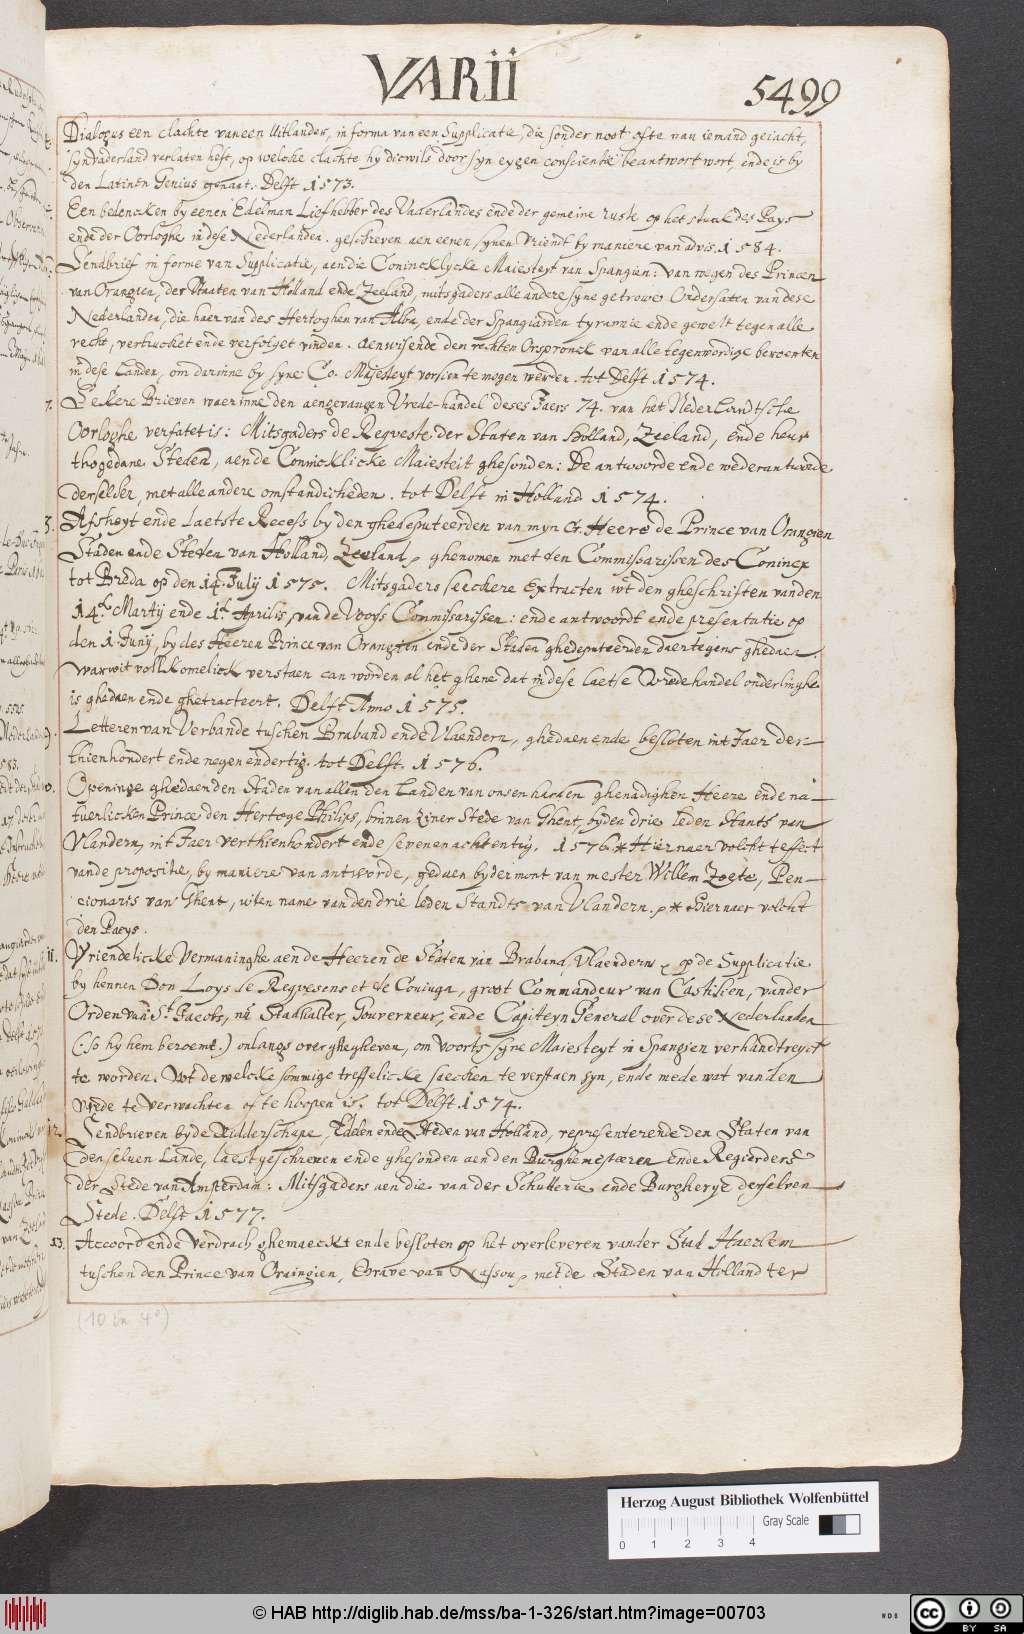 VARII
5499
Dialogus een clachte van een Uitlander, in forma van een Supplicatie, die sonder noot ofte van iemand geiacht,
syn vaderland verlaten heft, op welcke clachte hy dicwils door syn eygen conscientie beantwort wort, ende is by
den Latinen Genius genaat. Delft 1573.
Een bedencken by eenen Edelman Liefhebber des Vaderlandes ende der gemeine ruste op het stuck des Pays
ende der Oorloghe in dese Nederlanden. geschreven aen eenen synen Vriendt by maniere van advis. 1584.
Sendbrief in forme van Supplicatie, aen die Conincklycke Maiesteyt van Spangien: van wegen des Princen
van Orangien, der Staaten van Holland ende Zeeland, mitsgaders alle andere syne getrowe Ondersaten van dese
Nederlanden, die haer van des Hertoghen van Alba, ende der Spangiarden tyrannie ende gewelt tegen alle
recht, verdrucket ende verfolget vinden. aenwisende den rechten Orspronck van alle tegenwordige beroerten
in dese Landen, om darinne by syne Co. Majesteyt vorsien te mogen werden. tot Delft 1574.
7. Sekere Brieven waer inne den aengevangen Vrede-handel deses Jaers 74. van het Nederlandtsche
Oorloghe verfatet is: Mitsgaders de Requeste der Staten van Holland, Zeeland, ende haer
thogedane Steden, aen de Conincklicke Maiesteit ghesonden: De antwoorde ende wederantworde
derselder, met alle andere omstandicheden. tot Delft in Holland 1574.
Afsheyt ende Laetste Recess by den ghedeputeerden van myn G. Heere de Prince van Orangien
Staden ende Steden van Holland, Zeeland, ghenomen met den Commissarissen des Conincx
tot Breda op den 14. Julij 1575. Mitsgaders seeckere Extracten wt den gheschriften van den
14. Martij ende 1. Aprilis, van de Voors Commissarissen: ende antwoordt ende presentatie op
den 1. Junij, by des Heeren Prince van Orangien ende der Staden ghedeputeerden daertegens ghedaen.
Warwit vollkomelick verstaen can worden al het ghene dat in dese laetse Vredehandel onderlinghe
is ghedaen ende ghetracteert. Delft Anno 1575.
9. Letteren van Verbande tuschen Braband ende Vlaendern, ghedaen ende besloten int Jaer der-
thienhondert ende negen endertig. tot Delft. 1576.
Openinge ghedaen den Staden van allen den Landen van onsen harden ghenadighen Heere ende na-
tuerlicken Prince den Hertoge Philips, binnen zijner Stede van Ghent, by den drie leden Slants van
Vlandern, int Jaer verthienhondert ende sevenenachtentig. 1576. * Hiernaer volcht teffect
vande propositie, by maniere van antworde, gedaen by der mont van mester Willem Zoete, Pen-
cionaris van Ghent, uiten name van den drie leden Slandts van Vlandern. * Hiernaer volcht
den Paeys.
11. Vriendelicke Vermaninghe aen de Heeren de Staten van Braband, Vlaendern op de Supplicatie
by hennen Don Loys de Requesens et de Coniuga, groot Commandeur van Castilien, vander
Orden van St. Jacobs, nu Stadhalter, Gouverneur, ende Capiteyn General over dese Nederlanden
(:so hy hem beroemt.) onlangs over ghegheven, om voorts syne Maiesteyt in Spangien verhandtreyct
te worden. Wt de welcke sommige treffelicke saecken te verstaen syn, ende mede wat van den
vrede te verwachten ofte hoopen is. tot Delft. 1574.
12. Sendbrieven by de Ridderschape, Edelen ende Steden van Holland, representerende den Staten van
denselven Lande, laest geschreven ende ghesonden aen den Burghemesteren ende Regierders
der Stede van Amsterdam: Mitsgaders aen die van der Schutterie ende Burgherye derselven
Stede. Delft 1577.
13. Accoord ende Verdrach ghemaeckt ende besloten op het overleveren vander Stad Haerlem
tuschen den Prince van Oraingien, Grave van Nassou, met de Staden van Holland ter
(10 in 4°)
Herzog August Bibliothek Wolfenbüttel
Gray Scale
0 1 2 3 4
© HAB http://diglib.hab.de/mss/ba-1-326/start.htm?image=00703
WDB
cc BY SA